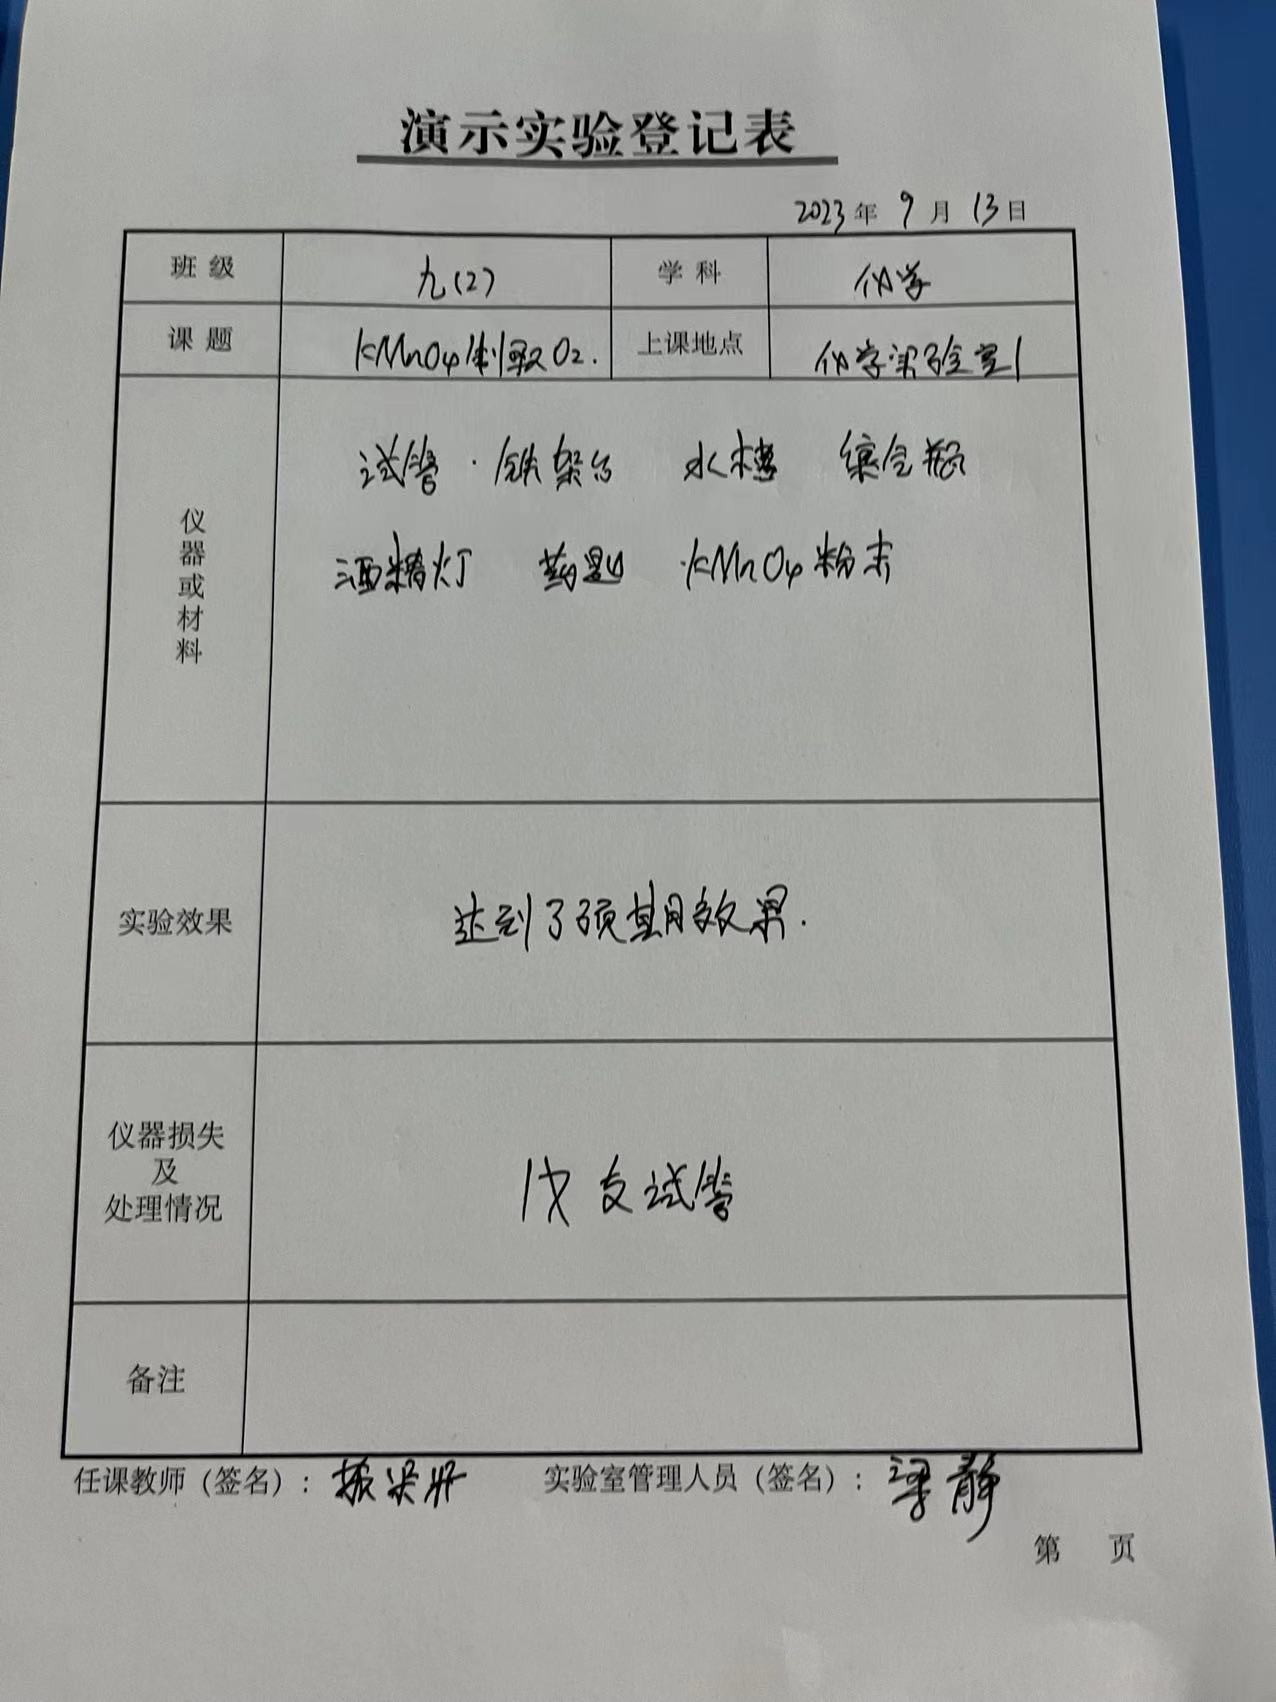 演示实验登记表
2023年 9月 13日
班级 九(2) 学科 化学
课题 KMnO4制取O2. 上课地点 化学实验室1
仪器或材料
试管 · 铁架台 水槽 集气瓶
酒精灯 药匙 KMnO4粉末
实验效果 达到了预期效果.
仪器损失
及
处理情况
支试管
备注
任课教师（签名）： 实验室管理人员（签名）：梁静
第 页